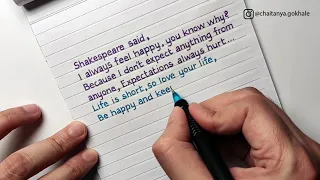 @chaitanya.gokhale
Shakespeare said,
I always feel happy, you know why?
Because I don't expect anything from
anyone, Expectations always hurt...
Life is short, so love your life,
Be happy and kee